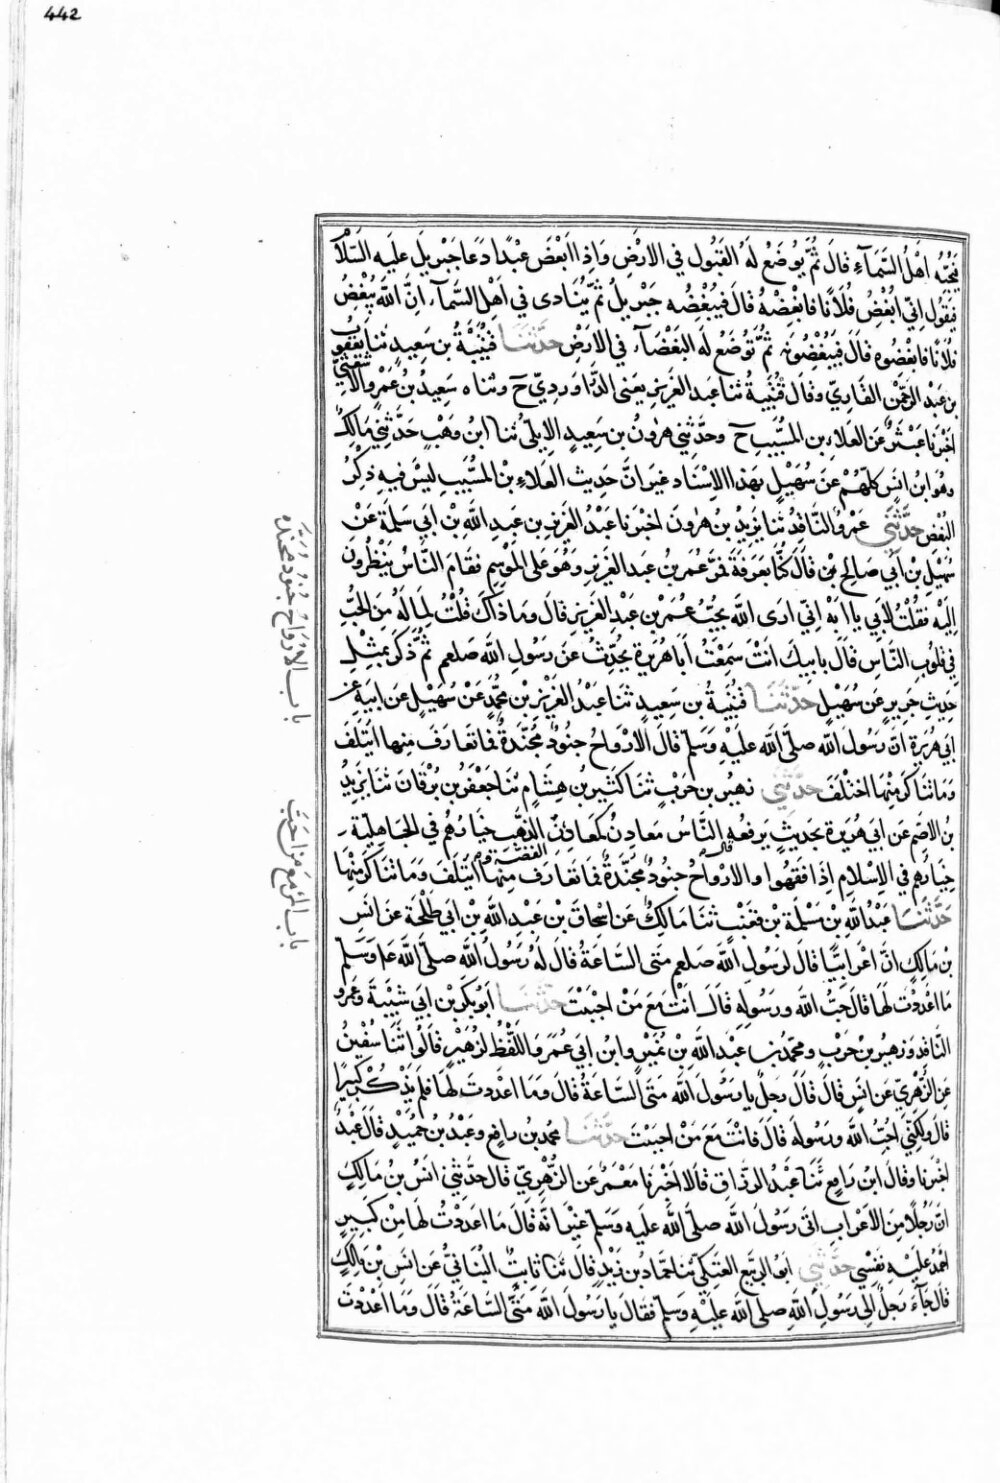 442
فيحبه اهل السماء قال ثم يوضع له القبول في الارض واذا ابغض عبدا دعا جبريل عليه السلام
فيقول اني ابغض فلانا فابغضه قال فيبغضه جبريل ثم ينادى في اهل السماء ان الله يبغض
فلانا فابغضوه قال فيبغضونه ثم توضع له البغضاء في الارض حدثنا قتيبة بن سعيد ثنا يعقوب
بن عبد الرحمن القاري وقال قتيبة ثنا عبد العزيز يعني الدراوردي ح وثناه سعيد بن عمرو الاشعثي
اخبرنا عبثر عن العلاء بن المسيب ح وحدثني هرون بن سعيد الايلي ثنا ابن وهب حدثني مالك
وهو ابن انس كلهم عن سهيل بهذا الاسناد غير ان حديث العلاء بن المسيب ليس فيه ذكر
البغض حدثني عمرو الناقد ثنا يزيد بن هرون اخبرنا عبد العزيز بن عبد الله بن ابي سلمة عن
سهيل بن ابي صالح قال كنا بعرفة فمر عمر بن عبد العزيز وهو على الموسم فقام الناس ينظرون
اليه فقلت لابي يا ابه اني ارى الله يحب عمر بن عبد العزيز قال وما ذاك قلت لما له من الحب
في قلوب الناس قال بابيك انت سمعت ابا هريرة يحدث عن رسول الله صلعم ثم ذكر بمثل
حديث جرير عن سهيل حدثنا قتيبة بن سعيد ثنا عبد العزيز بن محمد عن سهيل عن ابيه عن
ابي هريرة ان رسول الله صلى الله عليه وسلم قال الارواح جنود مجندة فما تعارف منها ايتلف
وما تناكر منها اختلف حدثني زهير بن حرب ثنا كثير بن هشام ثنا جعفر بن برقان ثنا يزيد
بن الاصم عن ابي هريرة بحديث يرفعه قال الناس معادن كمعادن الفضة والذهب خيارهم في الجاهلية
خيارهم في الاسلام اذا فقهوا والارواح جنود مجندة فما تعارف منها ايتلف وما تناكر منها
حدثنا عبد الله بن مسلمة بن قعنب ثنا مالك عن اسحاق بن عبد الله بن ابي طلحة عن انس
بن مالك ان اعرابيا قال لرسول الله صلعم متى الساعة قال له رسول الله صلى الله ع وسلم
ما اعددت لها قال حب الله ورسوله قال انت مع من احببت حدثنا ابو بكر بن ابي شيبة وعمرو
الناقد وزهير بن حرب ومحمد بن عبد الله بن نمير وابن ابي عمر واللفظ لزهير قالوا ثنا سفين
عن الزهري عن انس قال قال رجل يا رسول الله متى الساعة قال وما اعددت لها فلم يذكر كبيرا
قال ولكني احب الله ورسوله قال فانت مع من احببت حدثنا محمد بن رافع وعبد بن حميد قال عبد
اخبرنا وقال ابن رافع ثنا عبد الرزاق قالا اخبرنا معمر عن الزهري قال حدثني انس بن مالك
ان رجلا من الاعراب اتى رسول الله صلى الله عليه وسلم غير انه قال ما اعددت لها من كبير
احمد عليه نفسي حدثني ابو الربيع العتكي ثنا حماد بن زيد قال ثنا ثابت البناني عن انس بن مالك
قال جاء رجل الى رسول الله صلى الله عليه وسلم فقال يا رسول الله متى الساعة قال وما اعددت
باب الارواح جنود مجنده
باب المرء مع من احب